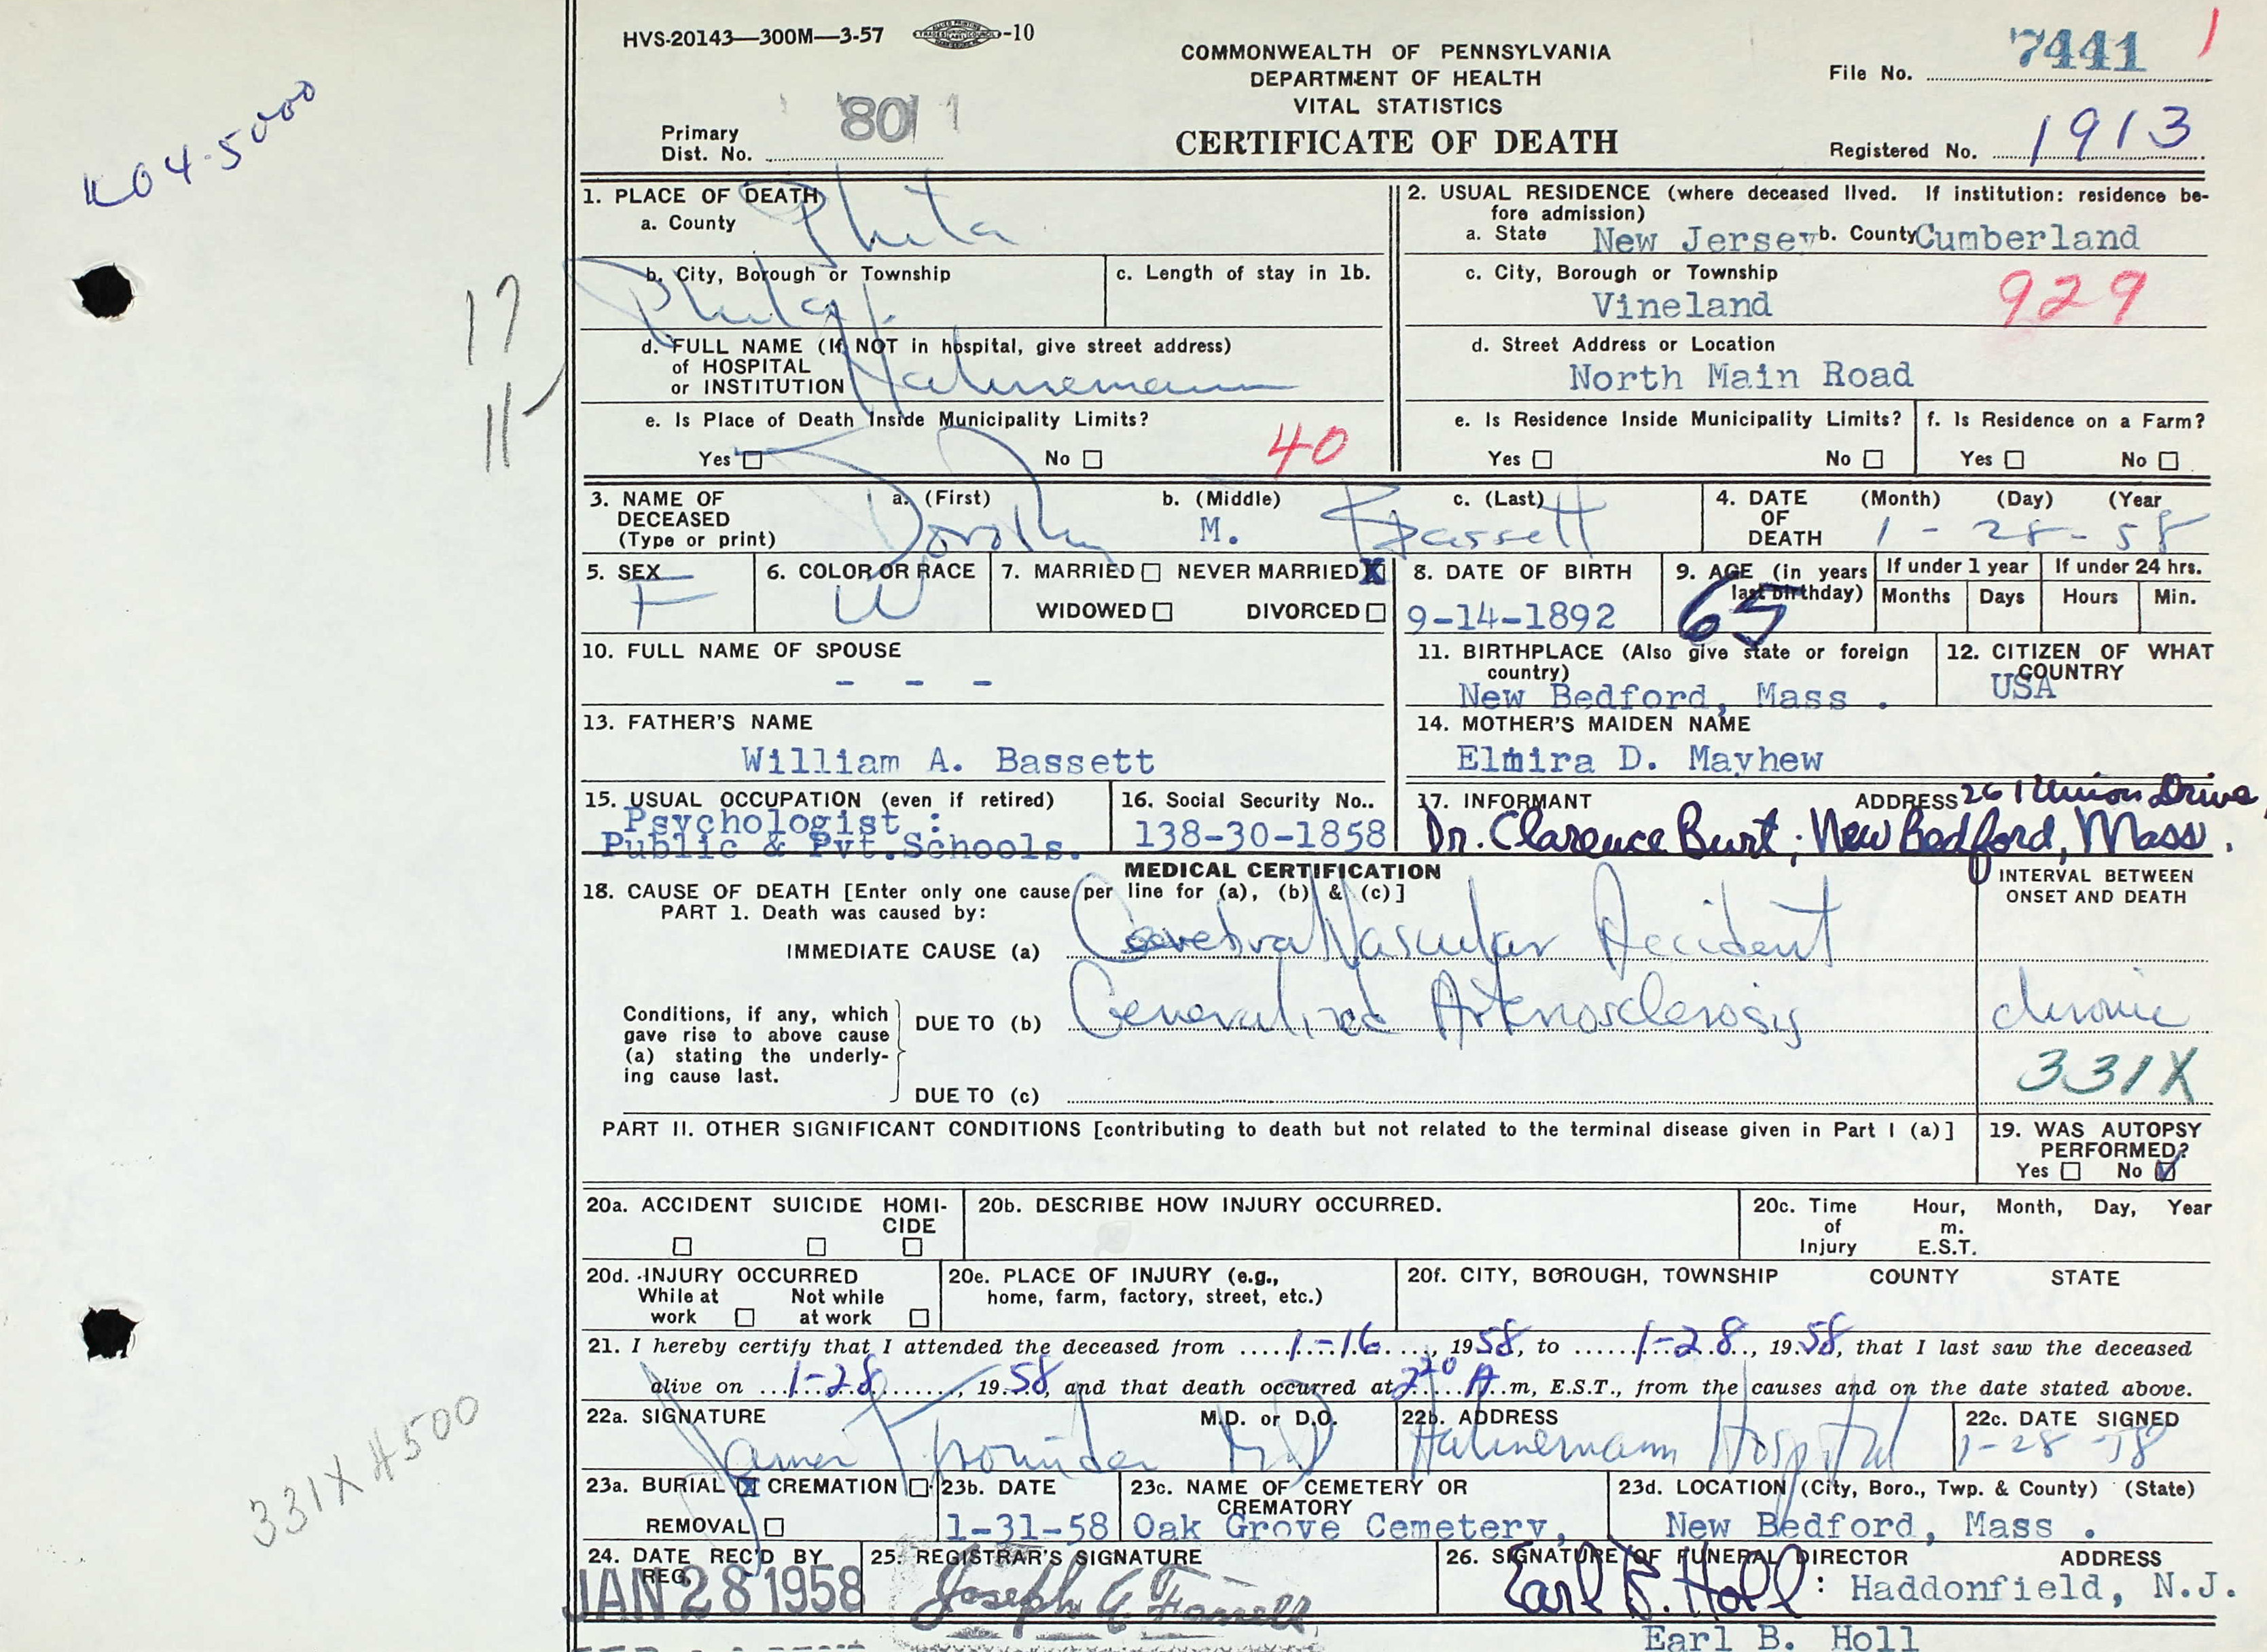 HVS-20143—300M—3-57 -10
COMMONWEALTH OF PENNSYLVANIA
DEPARTMENT OF HEALTH
VITAL STATISTICS
CERTIFICATE OF DEATH
File No. 7441 1
Primary
Dist. No. 80 1
Registered No. 1913
K04-5000
17
11
1. PLACE OF DEATH
a. County Phila
b. City, Borough or Township
Phila.
c. Length of stay in 1b.
d. FULL NAME (If NOT in hospital, give street address)
of HOSPITAL
or INSTITUTION Hahnemann
e. Is Place of Death Inside Municipality Limits?
Yes No 40
2. USUAL RESIDENCE (where deceased lived. If institution: residence be-
fore admission)
a. State New Jersey b. County Cumberland
c. City, Borough or Township
Vineland 929
d. Street Address or Location
North Main Road
e. Is Residence Inside Municipality Limits?
Yes No
f. Is Residence on a Farm?
Yes No
3. NAME OF a. (First) b. (Middle) c. (Last)
DECEASED Dorothy M. Bassett
(Type or print)
4. DATE (Month) (Day) (Year
OF
DEATH 1 - 28 - 58
5. SEX
F
6. COLOR OR RACE
W
7. MARRIED NEVER MARRIED X
WIDOWED DIVORCED
8. DATE OF BIRTH
9-14-1892
9. AGE (in years
last birthday)
65
If under 1 year
Months Days
If under 24 hrs.
Hours Min.
10. FULL NAME OF SPOUSE
- - -
11. BIRTHPLACE (Also give state or foreign
country)
New Bedford, Mass .
12. CITIZEN OF WHAT
COUNTRY
USA
13. FATHER'S NAME
William A. Bassett
14. MOTHER'S MAIDEN NAME
Elmira D. Mayhew
15. USUAL OCCUPATION (even if retired)
Psychologist :
Public & Pvt.Schools.
16. Social Security No..
138-30-1858
17. INFORMANT ADDRESS 261 Union Drive,
Dr. Clarence Burt; New Bedford, Mass.
MEDICAL CERTIFICATION
18. CAUSE OF DEATH [Enter only one cause per line for (a), (b) & (c)]
PART 1. Death was caused by:
INTERVAL BETWEEN
ONSET AND DEATH
IMMEDIATE CAUSE (a) Cerebral Vascular Accident
Conditions, if any, which
gave rise to above cause
(a) stating the underly-
ing cause last.
DUE TO (b) Generalized Arteriosclerosis chronic
331X
DUE TO (c)
PART II. OTHER SIGNIFICANT CONDITIONS [contributing to death but not related to the terminal disease given in Part I (a)]
19. WAS AUTOPSY
PERFORMED?
Yes No
20a. ACCIDENT SUICIDE HOMI-
CIDE
20b. DESCRIBE HOW INJURY OCCURRED.
20c. Time Hour, Month, Day, Year
of m.
Injury E.S.T.
20d. INJURY OCCURRED
While at Not while
work at work
20e. PLACE OF INJURY (e.g.,
home, farm, factory, street, etc.)
20f. CITY, BOROUGH, TOWNSHIP COUNTY STATE
21. I hereby certify that I attended the deceased from 1-16, 1958, to 1-28, 1958, that I last saw the deceased
alive on 1-28, 1958, and that death occurred at 220 A.m, E.S.T., from the causes and on the date stated above.
22a. SIGNATURE M.D. or D.O.
James MD
22b. ADDRESS
Hahnemann Hospital
22c. DATE SIGNED
1-28-58
331X H500
23a. BURIAL X CREMATION
REMOVAL
23b. DATE
1-31-58
23c. NAME OF CEMETERY OR
CREMATORY
Oak Grove Cemetery,
23d. LOCATION (City, Boro., Twp. & County) (State)
New Bedford, Mass .
24. DATE REC'D BY
REG.
JAN 28 1958
25. REGISTRAR'S SIGNATURE
Joseph
26. SIGNATURE OF FUNERAL DIRECTOR ADDRESS
Earl B. Holl : Haddonfield, N.J.
Earl B. Holl